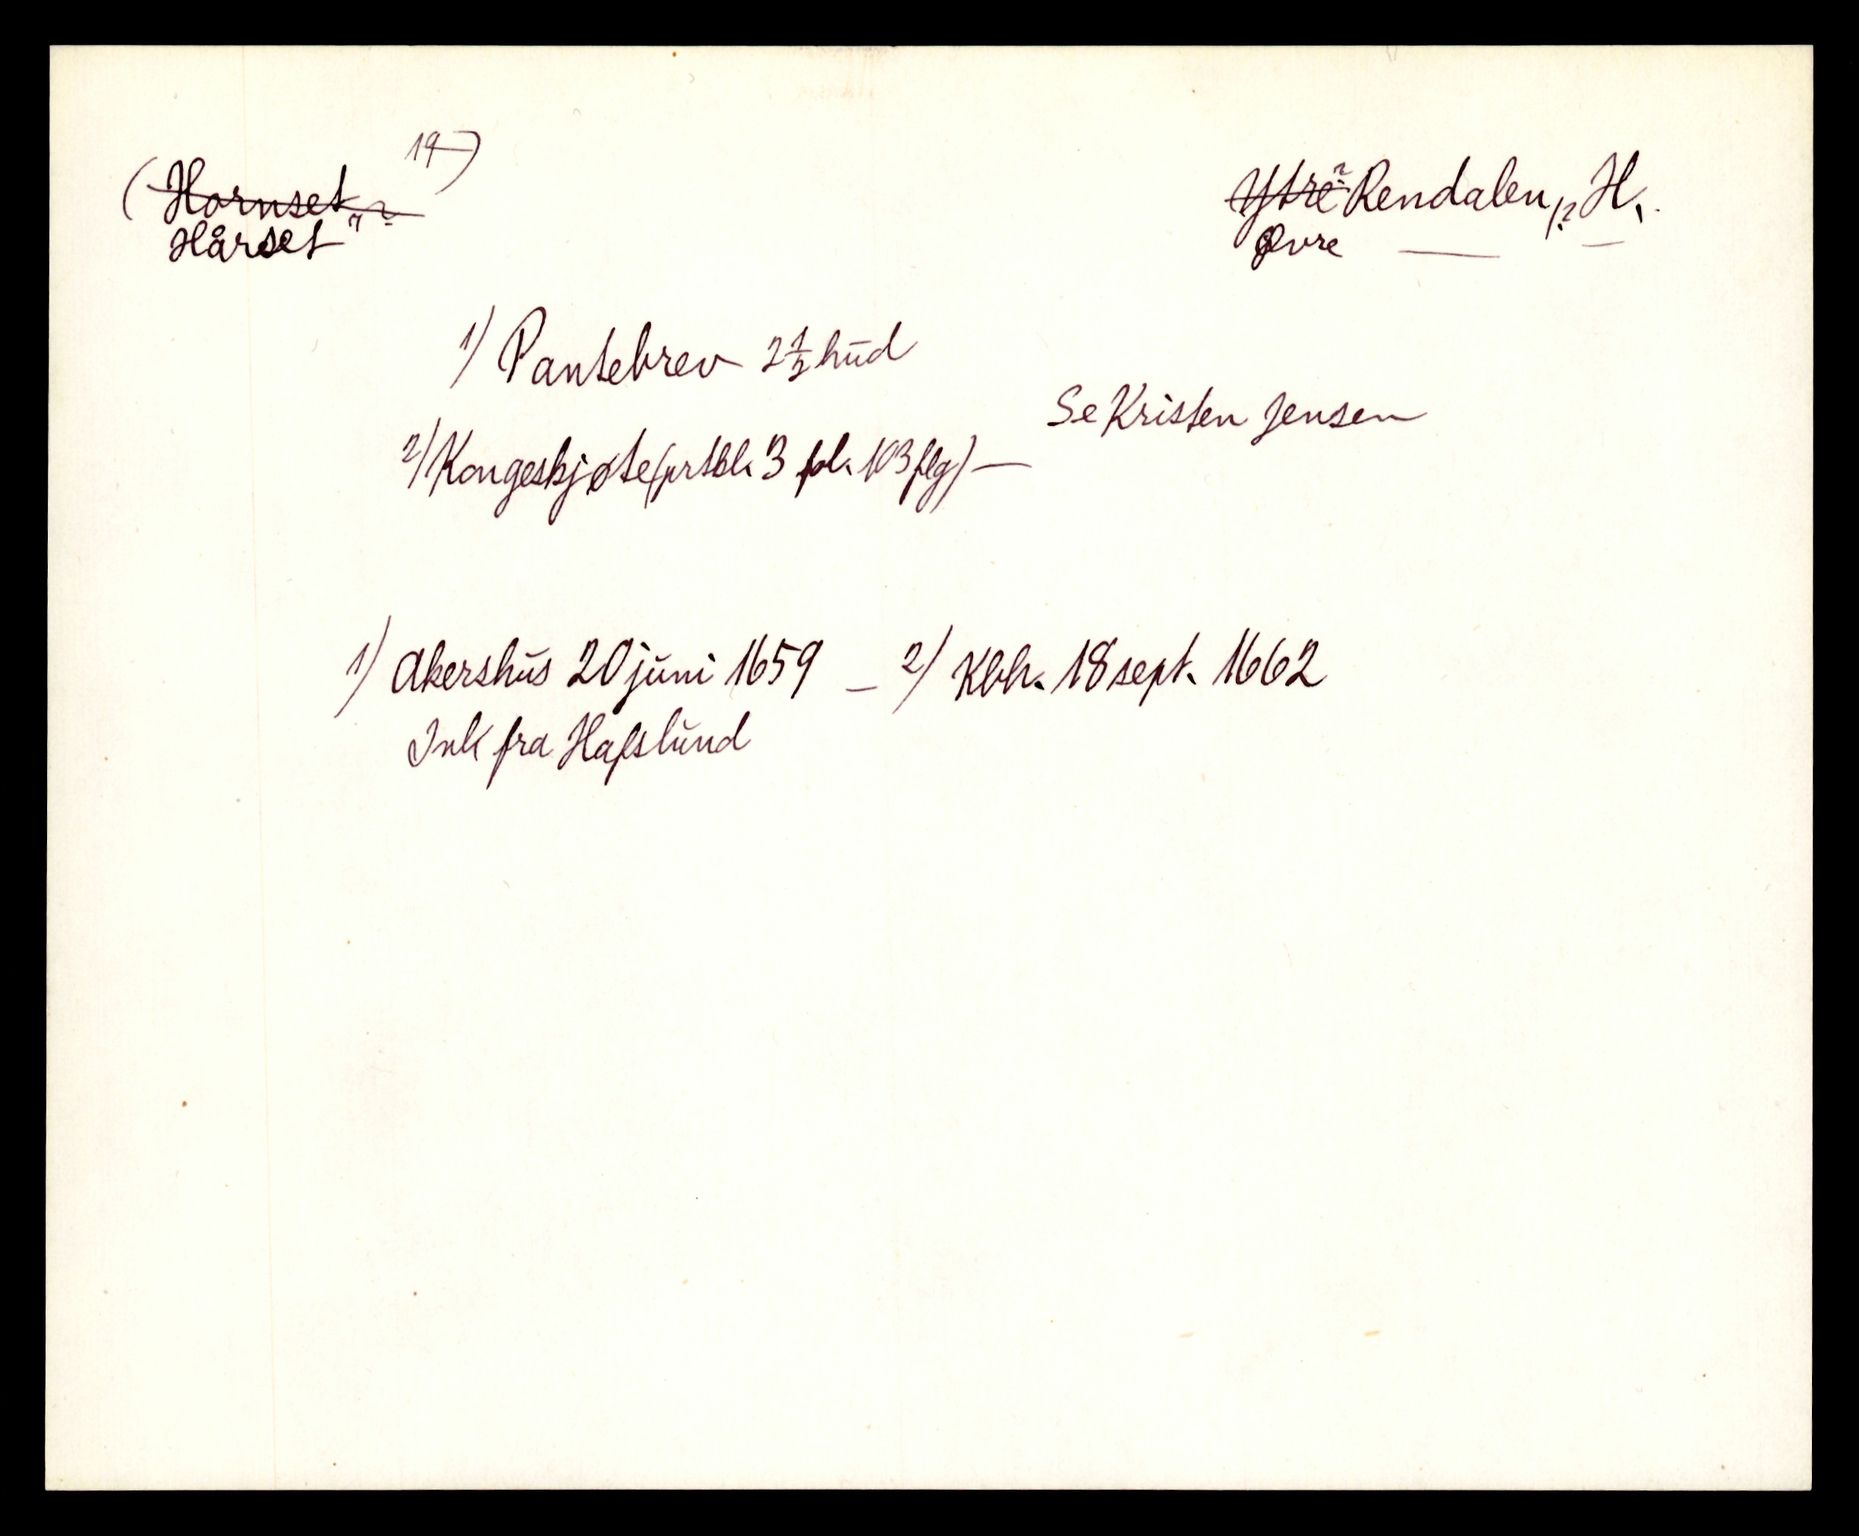 (Hornset 19)
Hårset
Ytre? Rendalen, H.
Øvre —— —
1) Pantebrev 2½ hud
Se Kristen Jensen
2) Kongeskjøte (prtbl. 3 fol. 103 flg) —
1) Akershus 20 juni 1659 — 2) Kbh. 18 sept. 1662
Ink fra Hafslund